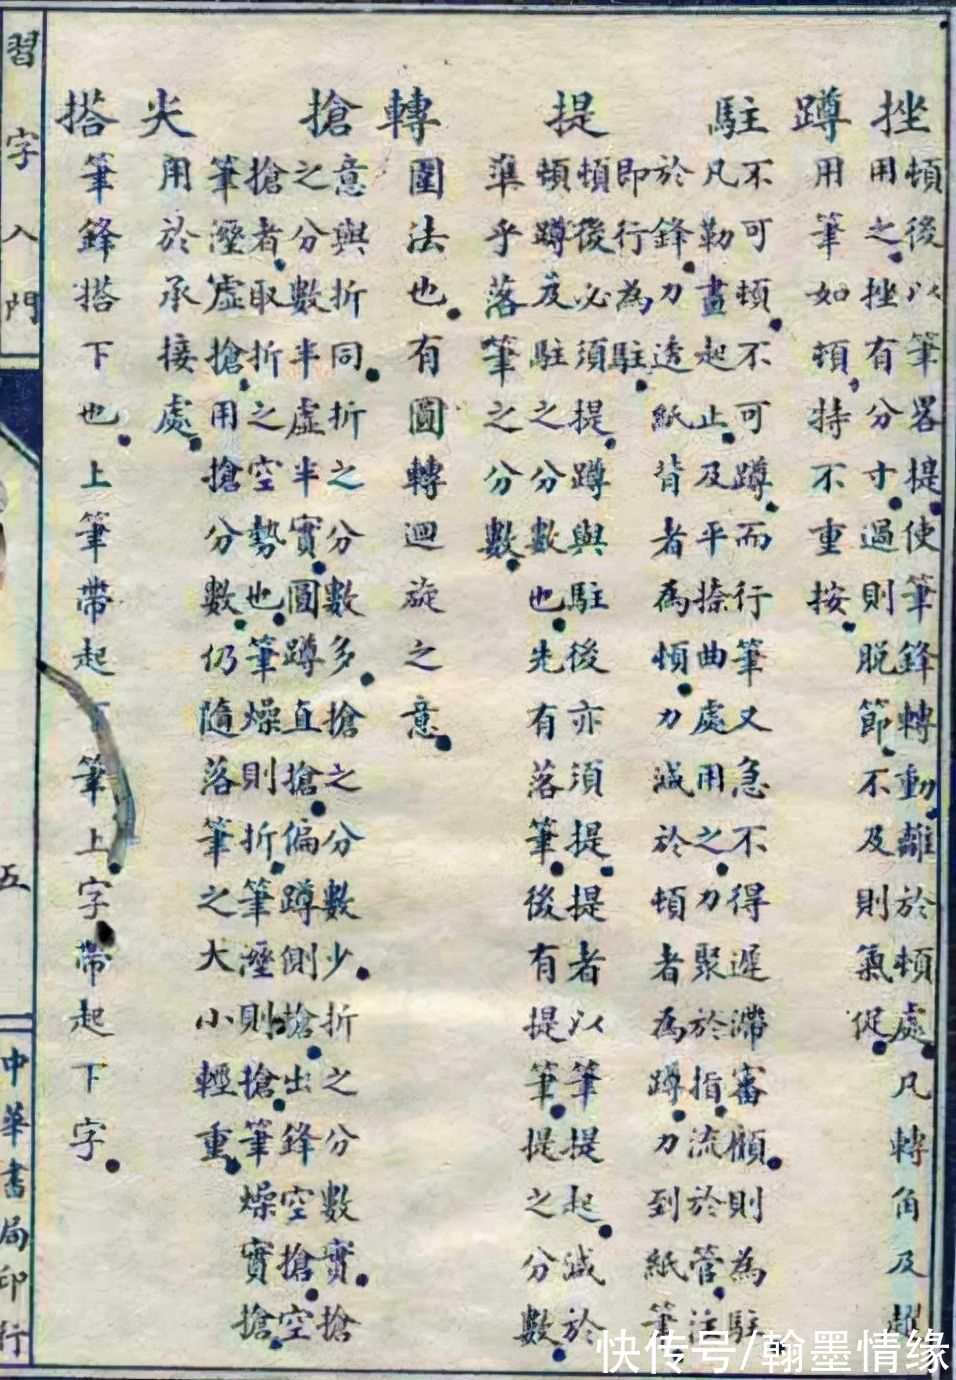 挫 頓後以筆畧提使筆鋒轉動離於頓處凡轉角及趯
用之挫有分寸過則脫節不及則氣促
蹲 用筆如頓持不重按
駐 不可頓不可蹲而行筆又急不得遲滯審顧則為駐
凡勒畫起止及平捺曲處用之力聚於指流於管注
於鋒力透紙背者為頓力減於頓者為蹲力到紙筆
即行為駐
提 頓後必須提蹲與駐後亦須提提者以筆提起減於
頓蹲及駐之分數也先有落筆後有提筆提之分數
準乎落筆之分數
轉 圜法也有圓轉迴旋之意
搶 意與折同折之分數多搶之分數少折之分數實搶
之分數半虛半實圓蹲直搶偏蹲側搶出鋒空搶空
搶者取折之空勢也筆燥則折筆溼則搶筆燥實搶
筆溼虛搶用搶分數仍隨落筆之大小輕重
尖 用於承接處
搭 筆鋒搭下也上筆帶起下筆上字帶起下字
習字入門
五
中華書局印行
快传号/翰墨情缘